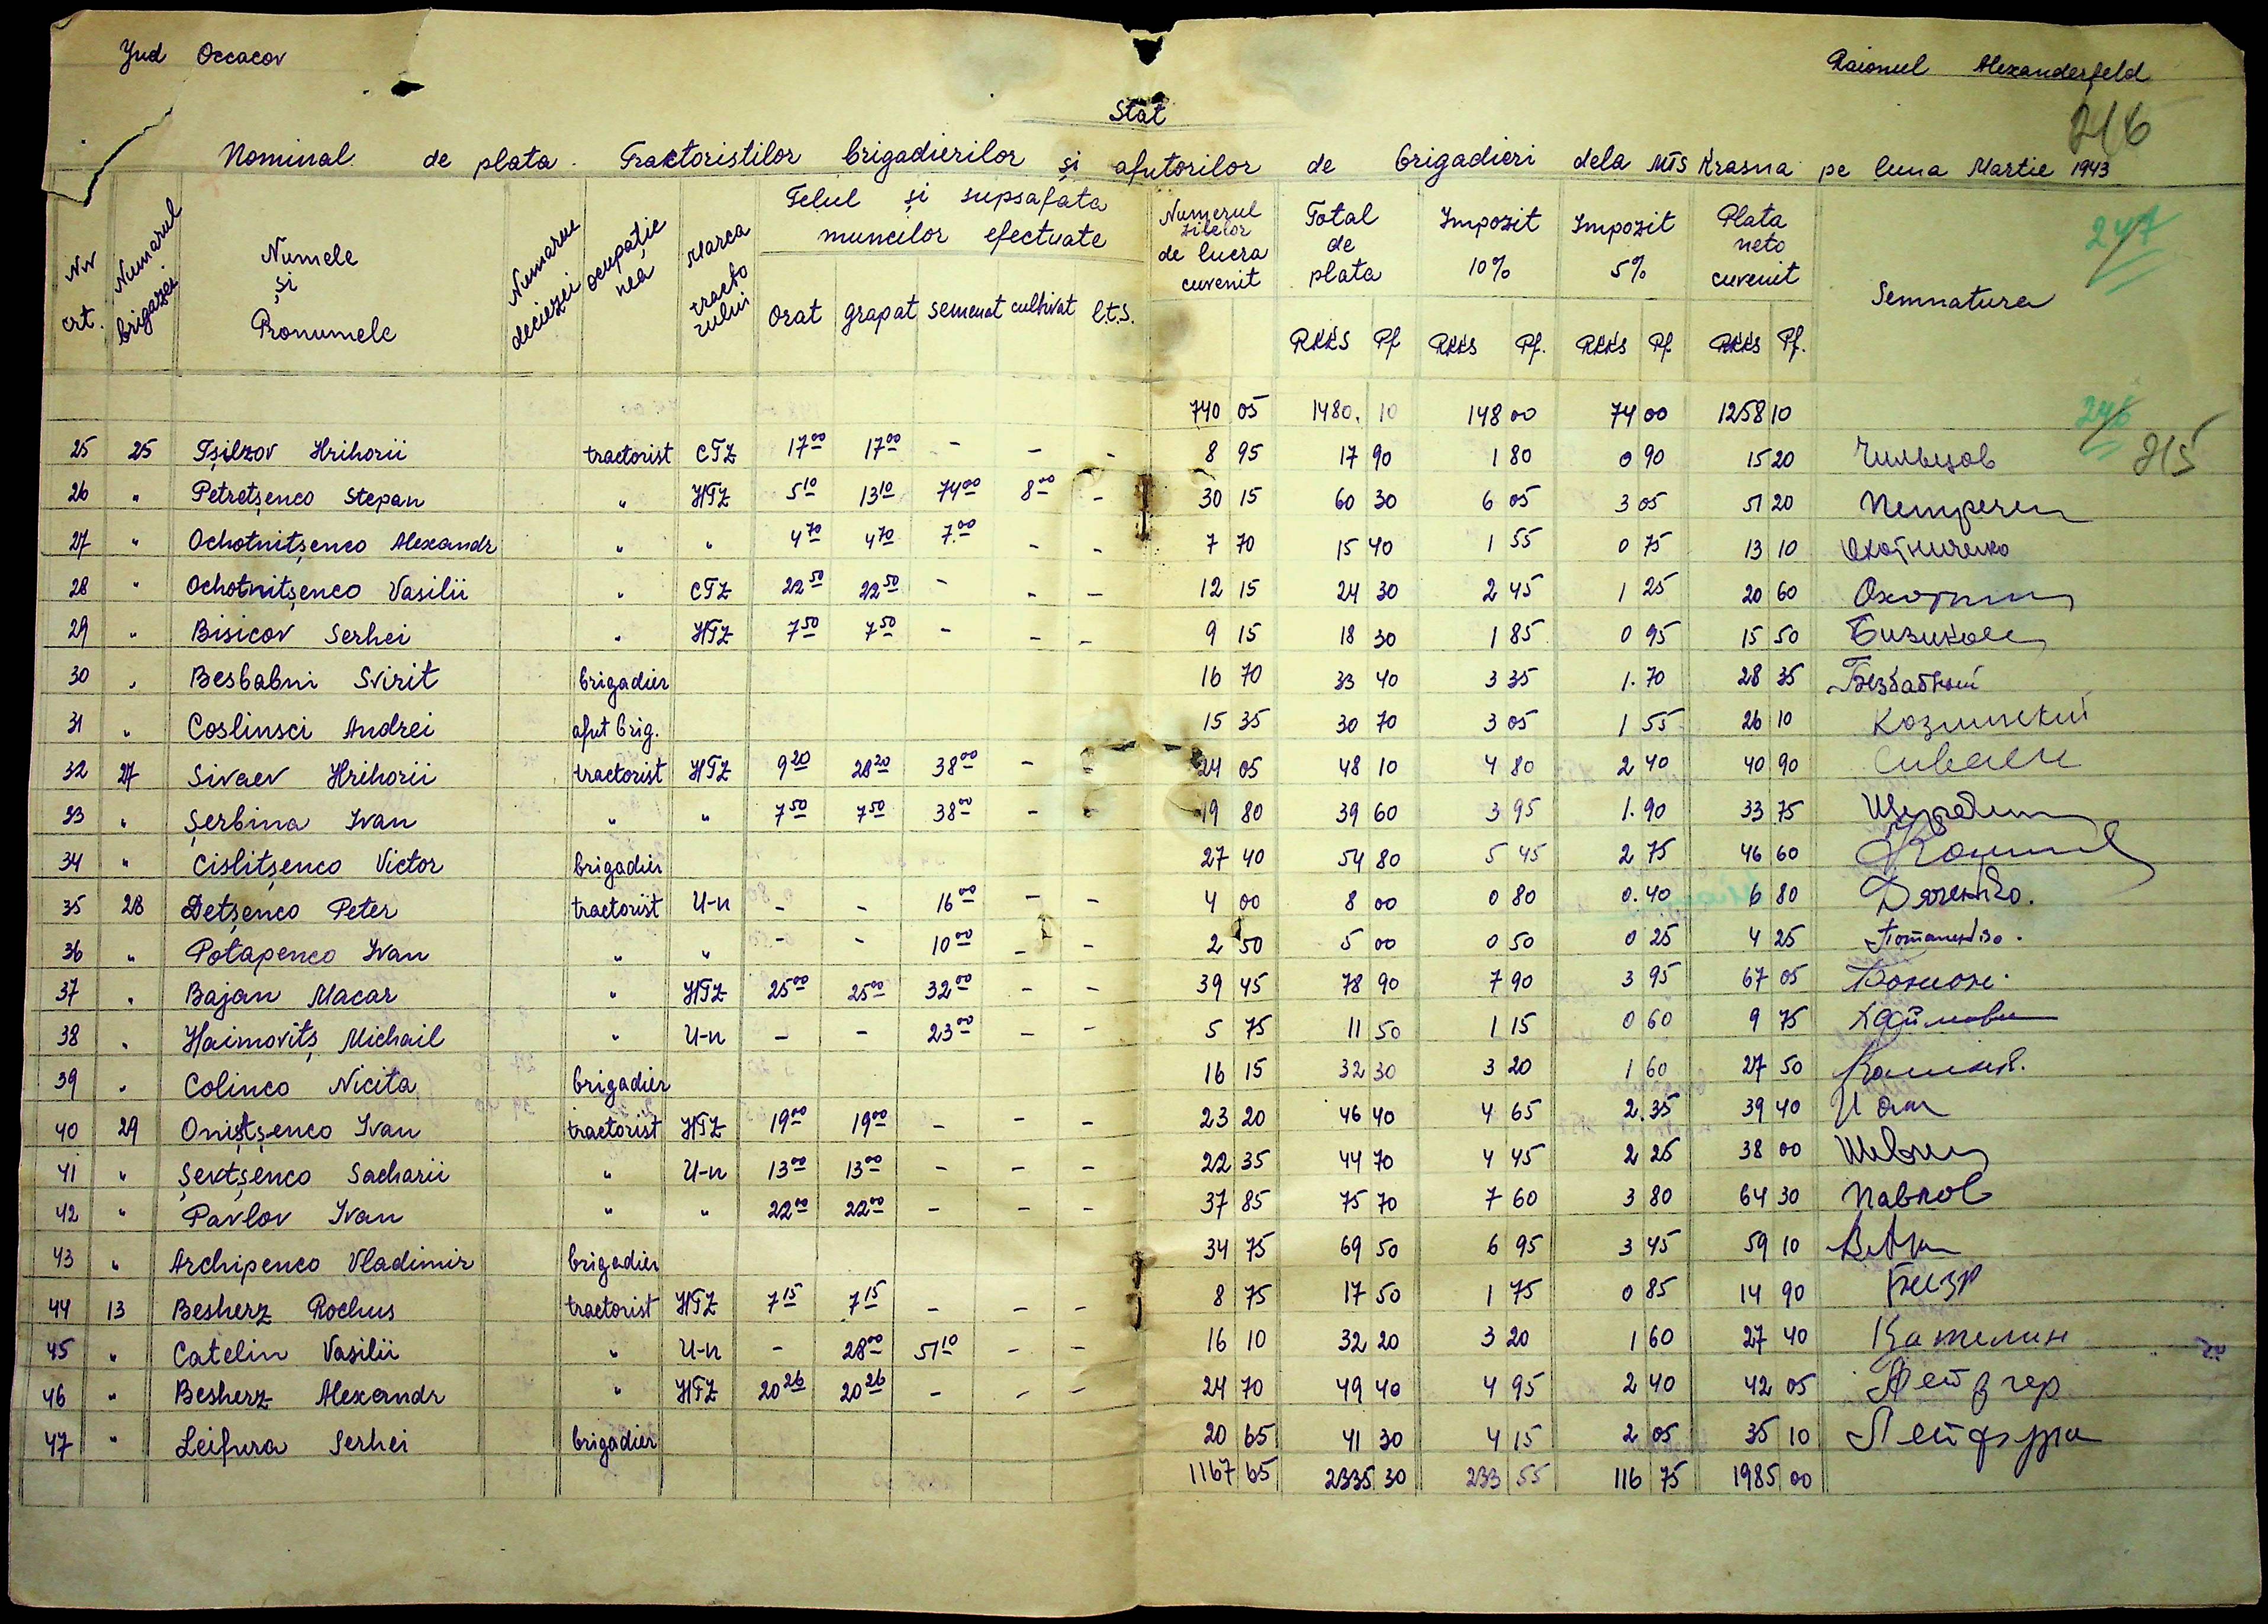 Jud Occacov
Raionul Alexanderfeld
216
Stat
Nominal de plata Tractoristilor brigadierilor și afutorilor de brigadieri dela MTS Krasna pe luna Martie 1943
247
Nr crt. Numarul brigazei Numele și Pronumele Numarul deciezei ocupație nea Marca tracto rului Felul și supsafata muncilor efectuate Numerul zilelor de lucra cuvenit Total de plata Impozit 10% Impozit 5% Plata neto cuvenit Semnatura
Orat grapat semenat cultivat l.t.s. RKKS Pf RKKS Pf. RKKS Pf RKKS Pf.
740 05 1480. 10 148 00 74 00 1258 10 246
25 25 Tșilzov Hrihorii tractorist CTZ 17 00 17 00 - - - 8 95 17 90 1 80 0 90 15 20 Чильцов 215
26 " Petretșenco Stepan " HTZ 5 10 13 10 74 00 8 00 - 30 15 60 30 6 05 3 05 51 20
27 " Ochotnitșenco Alexandr " " 4 70 4 70 7.00 - - 7 70 15 40 1 55 0 75 13 10 Охотниченко
28 " Ochotnitșenco Vasilii " CTZ 22 50 22 50 - - - 12 15 24 30 2 45 1 25 20 60
29 " Bisicov Serhei " HTZ 7 50 7 50 - - - 9 15 18 30 1 85 0 95 15 50 Бизиков
30 " Besbabni Svirit brigadier 16 70 33 40 3 35 1.70 28 35 Безбабный
31 " Coslinsci Andrei afut brig. 15 35 30 70 3 05 1 55 26 10 Козлинский
32 27 Sivaev Hrihorii tractorist HTZ 9 20 28 20 38 00 - - 24 05 48 10 4 80 2 40 40 90 Сиваев
33 " Șerbina Ivan " " 7 50 7 50 38 00 - - 19 80 39 60 3 95 1.90 33 75
34 " Cislitșenco Victor brigadier 27 40 54 80 5 45 2 75 46 60
35 28 Detșenco Peter tractorist U-n - - 16 00 - - 4 00 8 00 0 80 0.40 6 80 Дяченко.
36 " Potapenco Ivan " " - - 10 00 - - 2 50 5 00 0 50 0 25 4 25 Потапенко.
37 " Bajan Macar " HTZ 25 00 25 00 32 00 - - 39 45 78 90 7 90 3 95 67 05
38 " Haimovitș Michail " U-n - - 23 00 - - 5 75 11 50 1 15 0 60 9 75
39 " Colinco Nicita brigadier 16 15 32 30 3 20 1 60 27 50
40 29 Oniștșenco Ivan tractorist HTZ 19 00 19 00 - - - 23 20 46 40 4 65 2.35 39 40
41 " Șevtșenco Sacharii " U-n 13 00 13 00 - - - 22 35 44 70 4 45 2 25 38 00
42 " Pavlov Ivan " " 22 00 22 00 - - - 37 85 75 70 7 60 3 80 64 30 Павлов
43 " Archipenco Vladimir brigadier 34 75 69 50 6 95 3 45 59 10
44 13 Besherz Rochus tractorist HTZ 7 15 7 15 - - - 8 75 17 50 1 75 0 85 14 90
45 " Catelin Vasilii " U-n - 28 00 51 10 - - 16 10 32 20 3 20 1 60 27 40 Кателин
46 " Besherz Alexandr " HTZ 20 26 20 26 - - - 24 70 49 40 4 95 2 40 42 05
47 " Leifura Serhei brigadier 20 65 41 30 4 15 2 05 35 10 Лейфура
1167 65 2335 30 233 55 116 75 1985 00